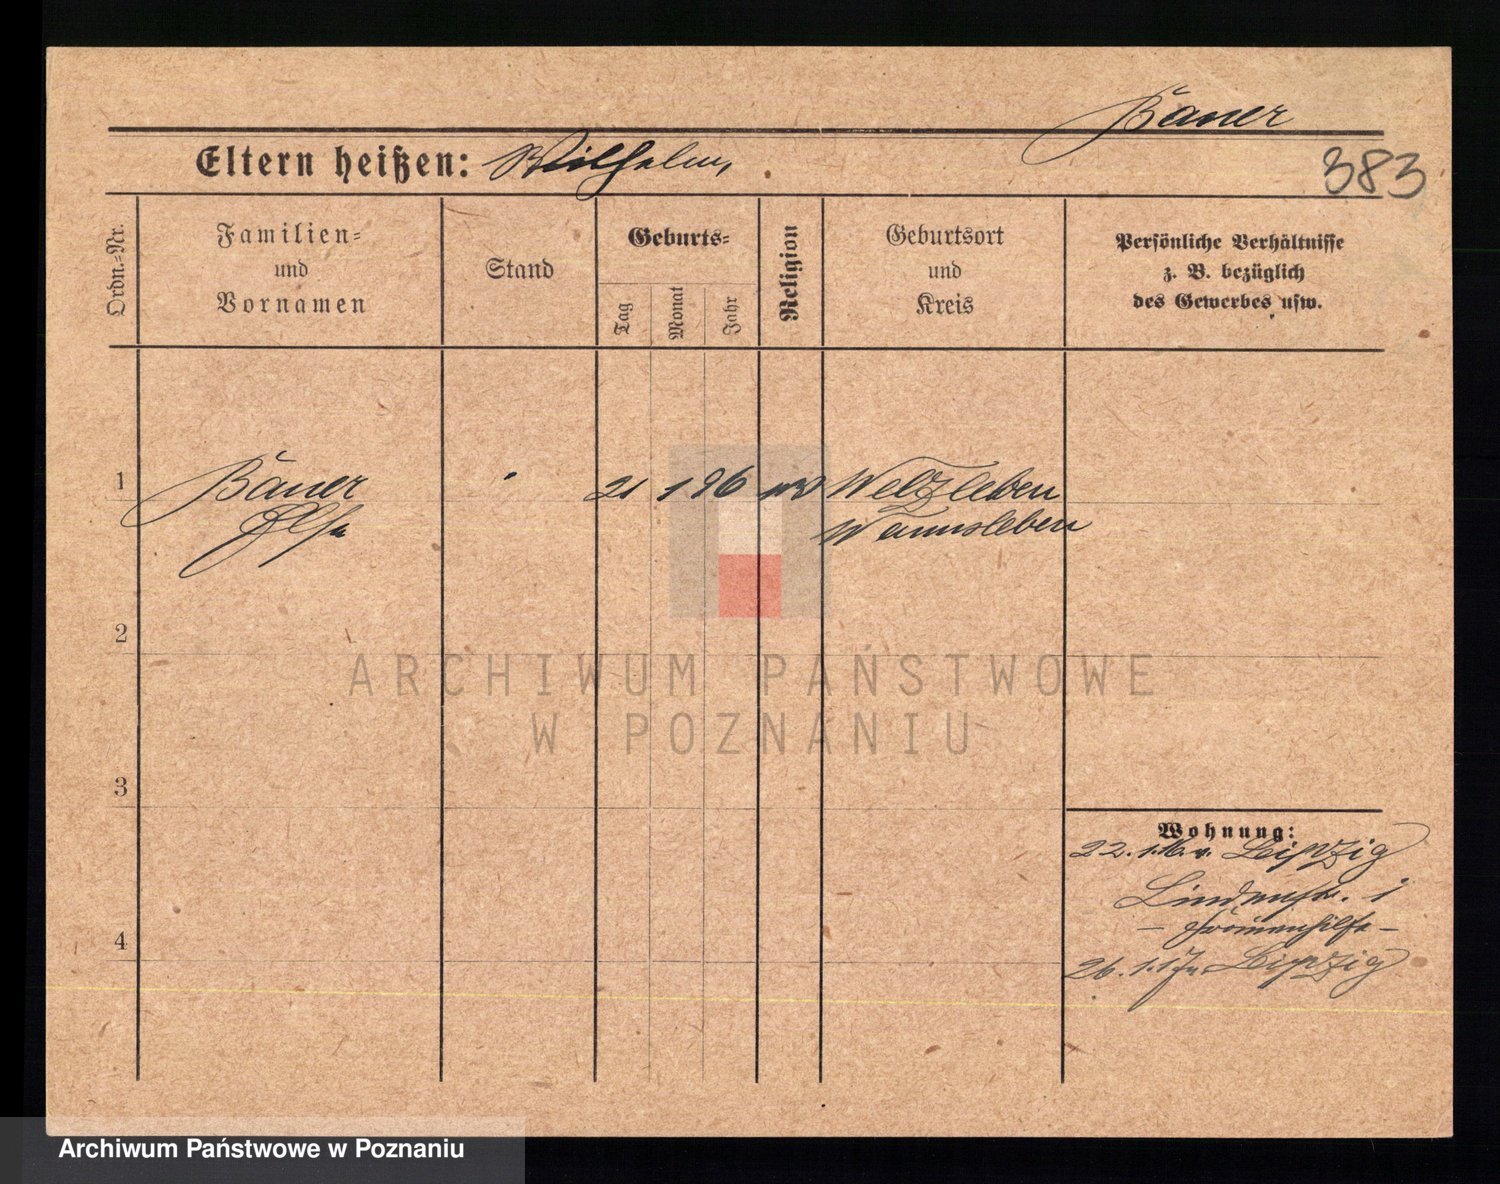 Bäuer
Eltern heißen: Wilhelm
383
Ordn.=Nr.
Familien=
und
Vornamen
Stand
Geburts=
Tag
Monat
Jahr
Religion
Geburtsort
und
Kreis
Persönliche Verhältnisse
z. B. bezüglich
des Gewerbes usw.
1
Bäuer
Else
21 1 96
Welzleben
Wannsleben
2
3
4
Wohnung:
22. 1. 16. v. Leipzig
Lindenstr. 1
26. 1. 17 n. Leipzig
ARCHIWUM PAŃSTWOWE
W POZNANIU
Archiwum Państwowe w Poznaniu